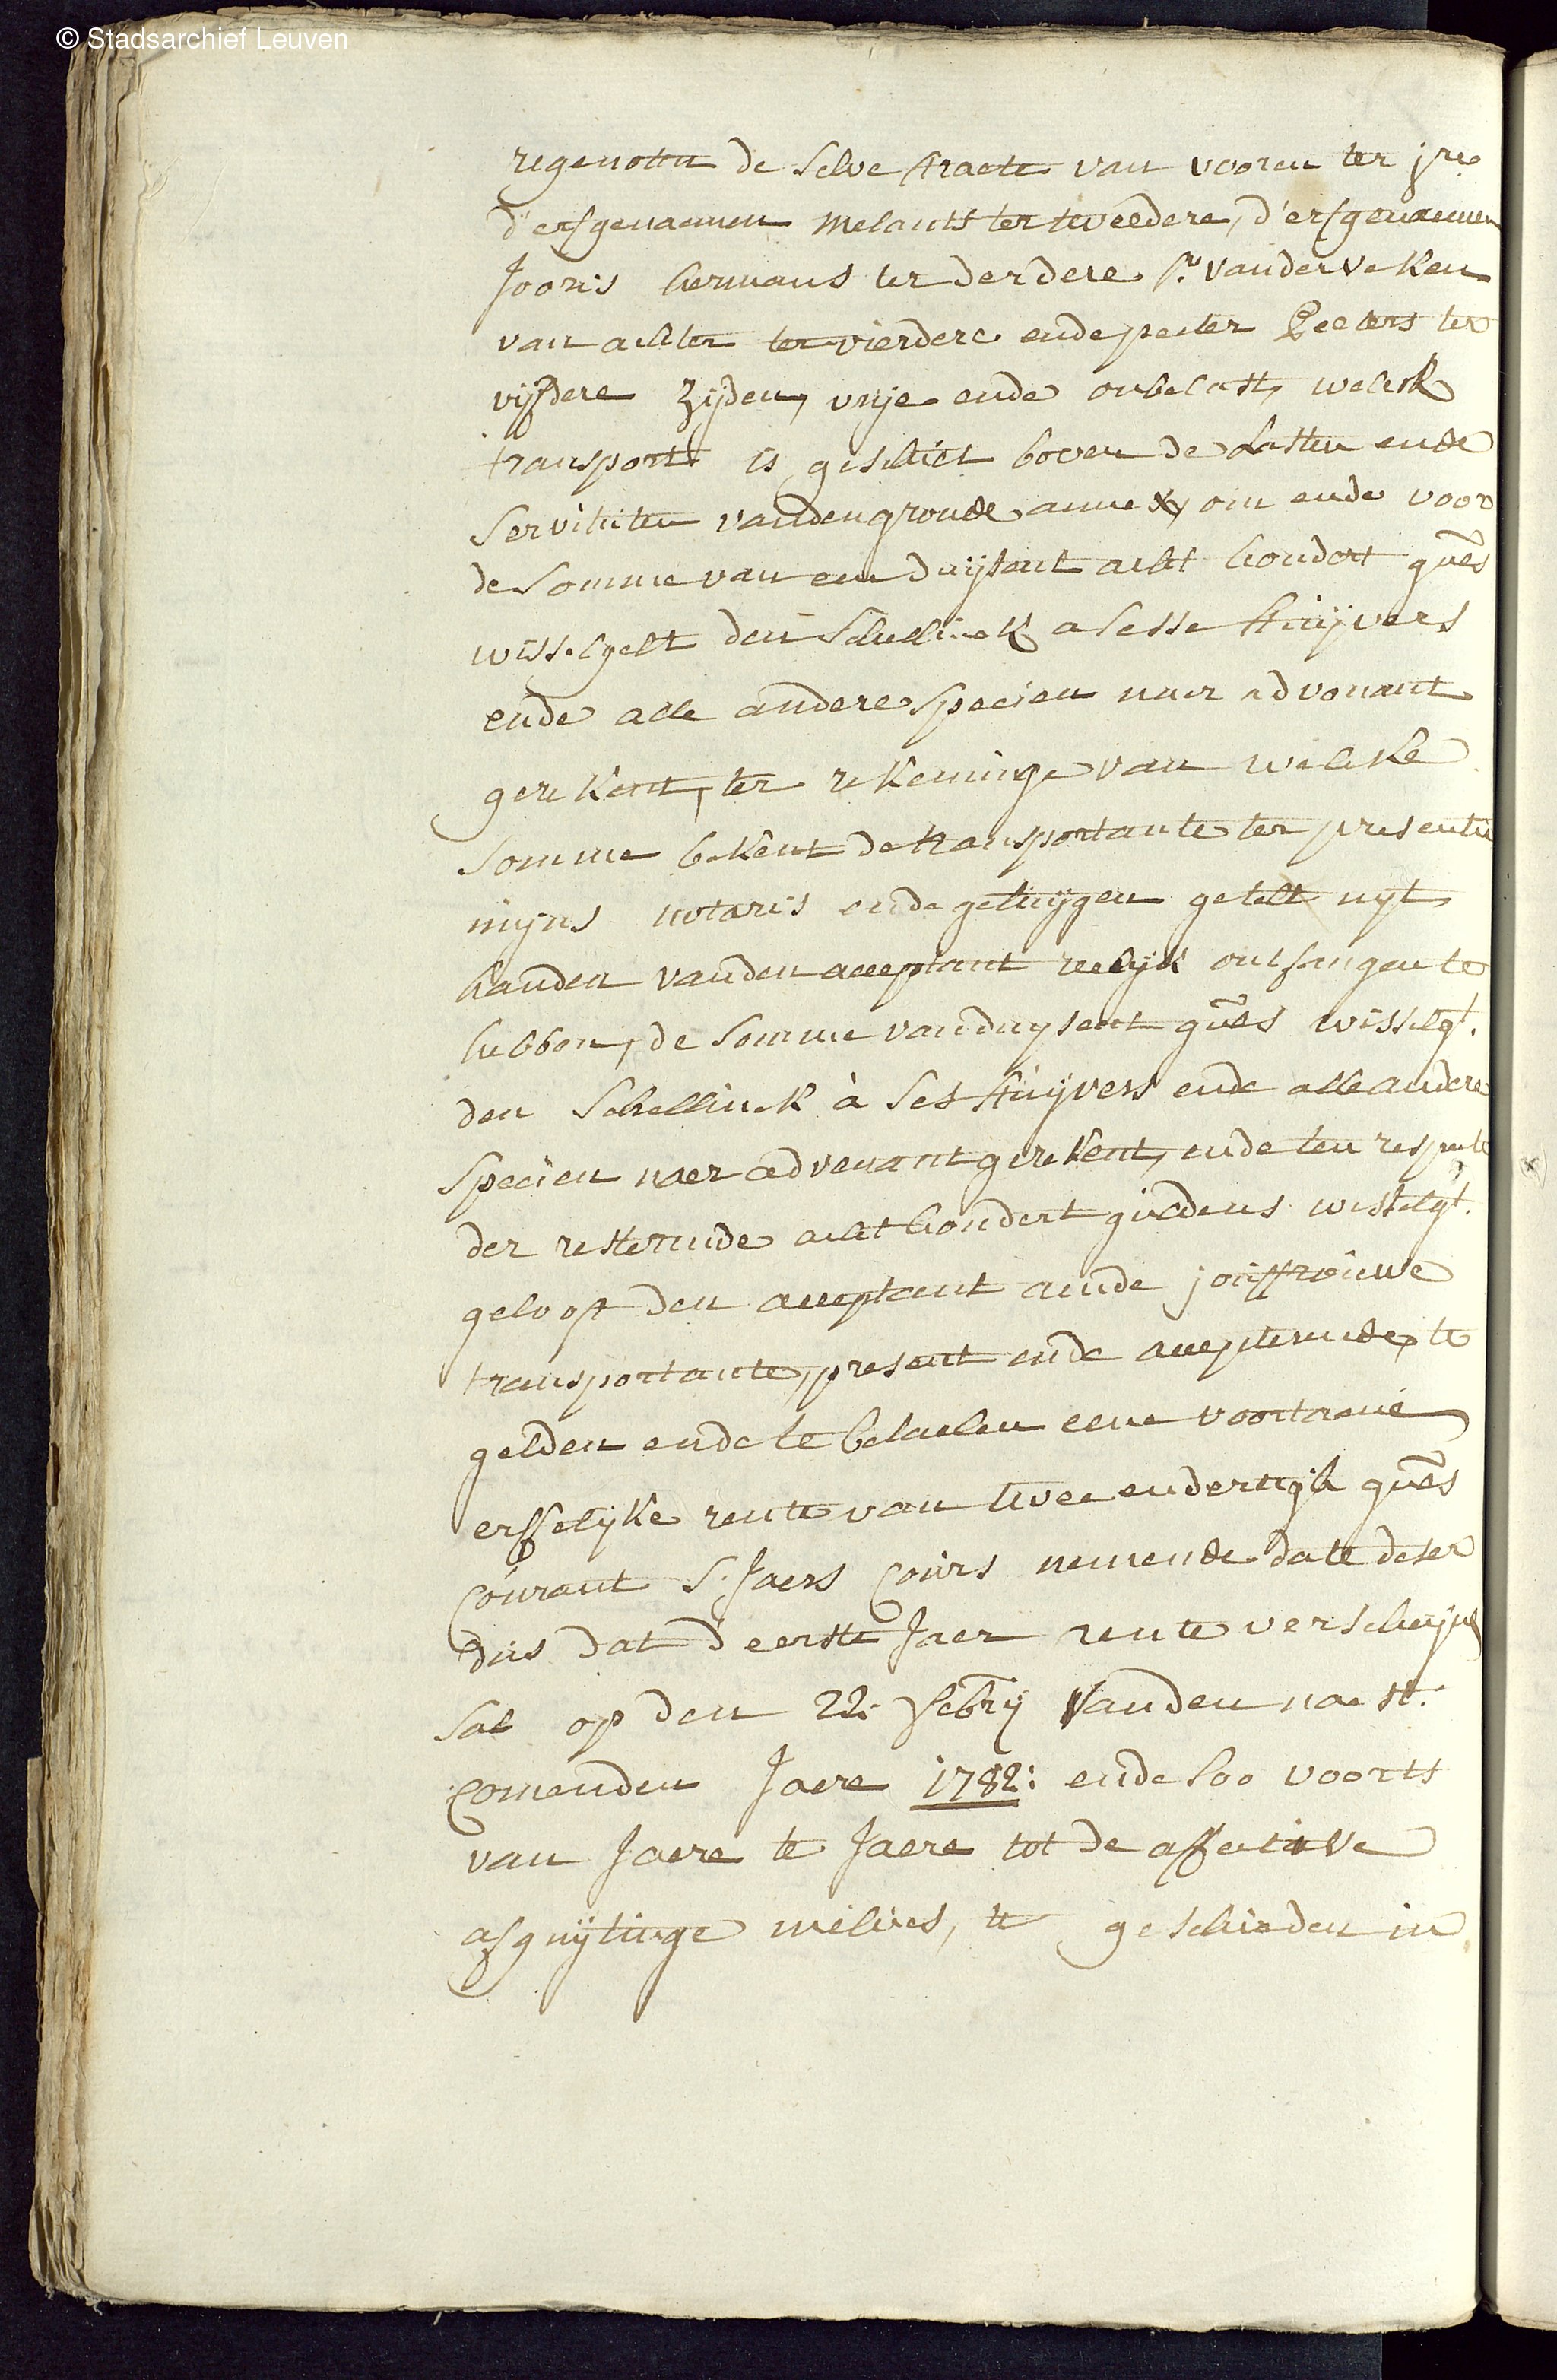 © Stadsarchief Leuven
regenotten de selve straete van vooren ter jre
d'erfgenaemen Melants ter tweedere, d'erfgenaemen
Jooris hermans ter derdere sr. vanderveken
van achter ter vierdere ende peeter Peeters ter
vijfdere zijden, vrije ende onbelast, welck
transport is geschiet boven de Lasten ende
servituten vanden gronde annex, om ende voor
de somme van een duijsent acht hondert guls
wisselgelt den schellinck a sesse stuijvers
ende alle andere specien naer advenant
gerekent, ter rekeninge van welcke
somme bekent de transportante ter presentie
mijns notaris ende getuijgen getelt uyt
handen vanden acceptant reelyk ontfangen te
hebben, de somme van duysent guls wisselgt.
den schellinck à ses stuijvers ende alle andere
specien naer advenant gerekent, ende ten respecte
der resterende acht hondert guldens wisselgt.
geloopt den acceptant aende jouffrouwe
transportante, present ende accepterende, te
gelden ende te betaelen eene voortaene
erffelyke rente van twee en dertigh guls
courant s'Jaers Cours nemende date deser
dus dat d'eerste Jaer rente verscheijnen
sal op den 22. febrij vanden naest
comenden Jaere 1782: ende soo voorts
van Jaere te Jaere tot de effective
afquijtinge melives, te geschieden in